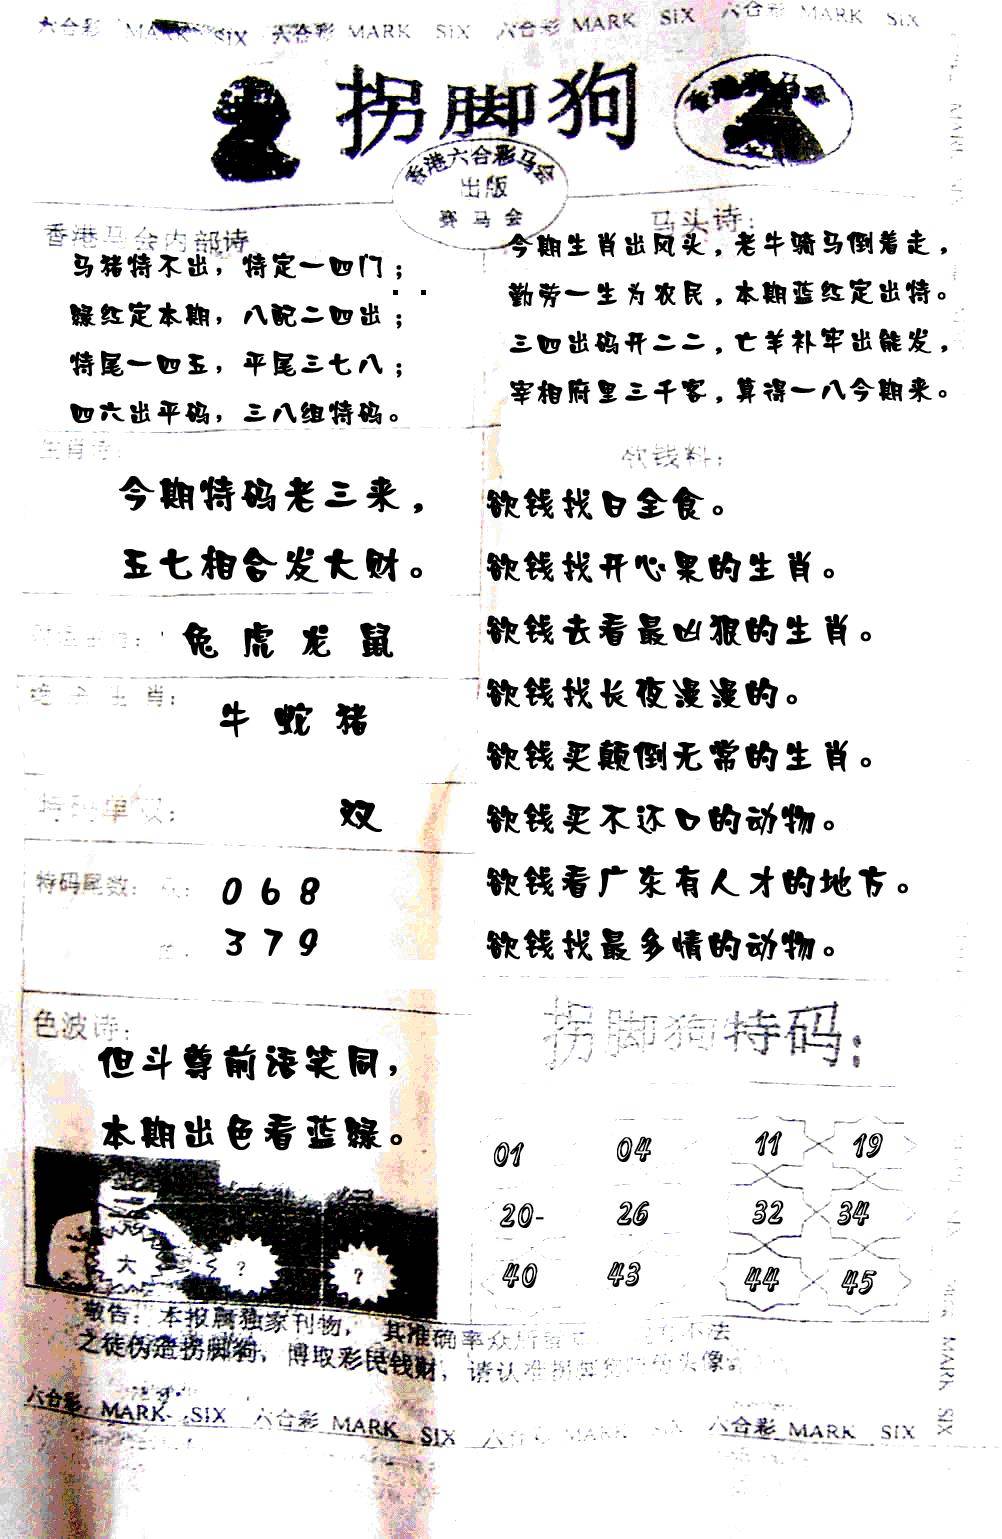 六合彩 MARK SIX 六合彩 MARK SIX 六合彩 MARK SIX 六合彩 MARK SIX
拐脚狗
香港六合彩马会
出版
赛马会
香港马会内部诗
马猪特不出，特定一四门；
绿红定本期，八配二四出；
特尾一四五，平尾三七八；
四六出平码，三八组特码。
马头诗：
今期生肖出风头，老牛骑马倒着走，
勤劳一生为农民，本期蓝红定出特。
三四出码开二二，亡羊补牢出能发，
宰相府里三千客，算得一八今期来。
生肖诗：
今期特码老三来，
五七相合发大财。
兔 虎 龙 鼠
生肖：
牛 蛇 猪
特码单双：
双
特码尾数：
0 6 8
3 7 9
欲钱料：
欲钱找日全食。
欲钱找开心果的生肖。
欲钱去看最凶狠的生肖。
欲钱找长夜漫漫的。
欲钱买颠倒无常的生肖。
欲钱买不还口的动物。
欲钱看广东有人才的地方。
欲钱找最多情的动物。
色波诗：
但斗尊前语笑同，
本期出色看蓝绿。
大 ? ?
拐脚狗特码：
01 04 11 19
20- 26 32 34
40 43 44 45
敬告：本报属独家刊物，其准确率众所 不法
之徒伪造拐脚狗，博取彩民钱财，请认准拐脚狗 头像。
六合彩 MARK SIX 六合彩 MARK SIX 六合彩 MARK SIX 六合彩 MARK SIX
MARK SIX